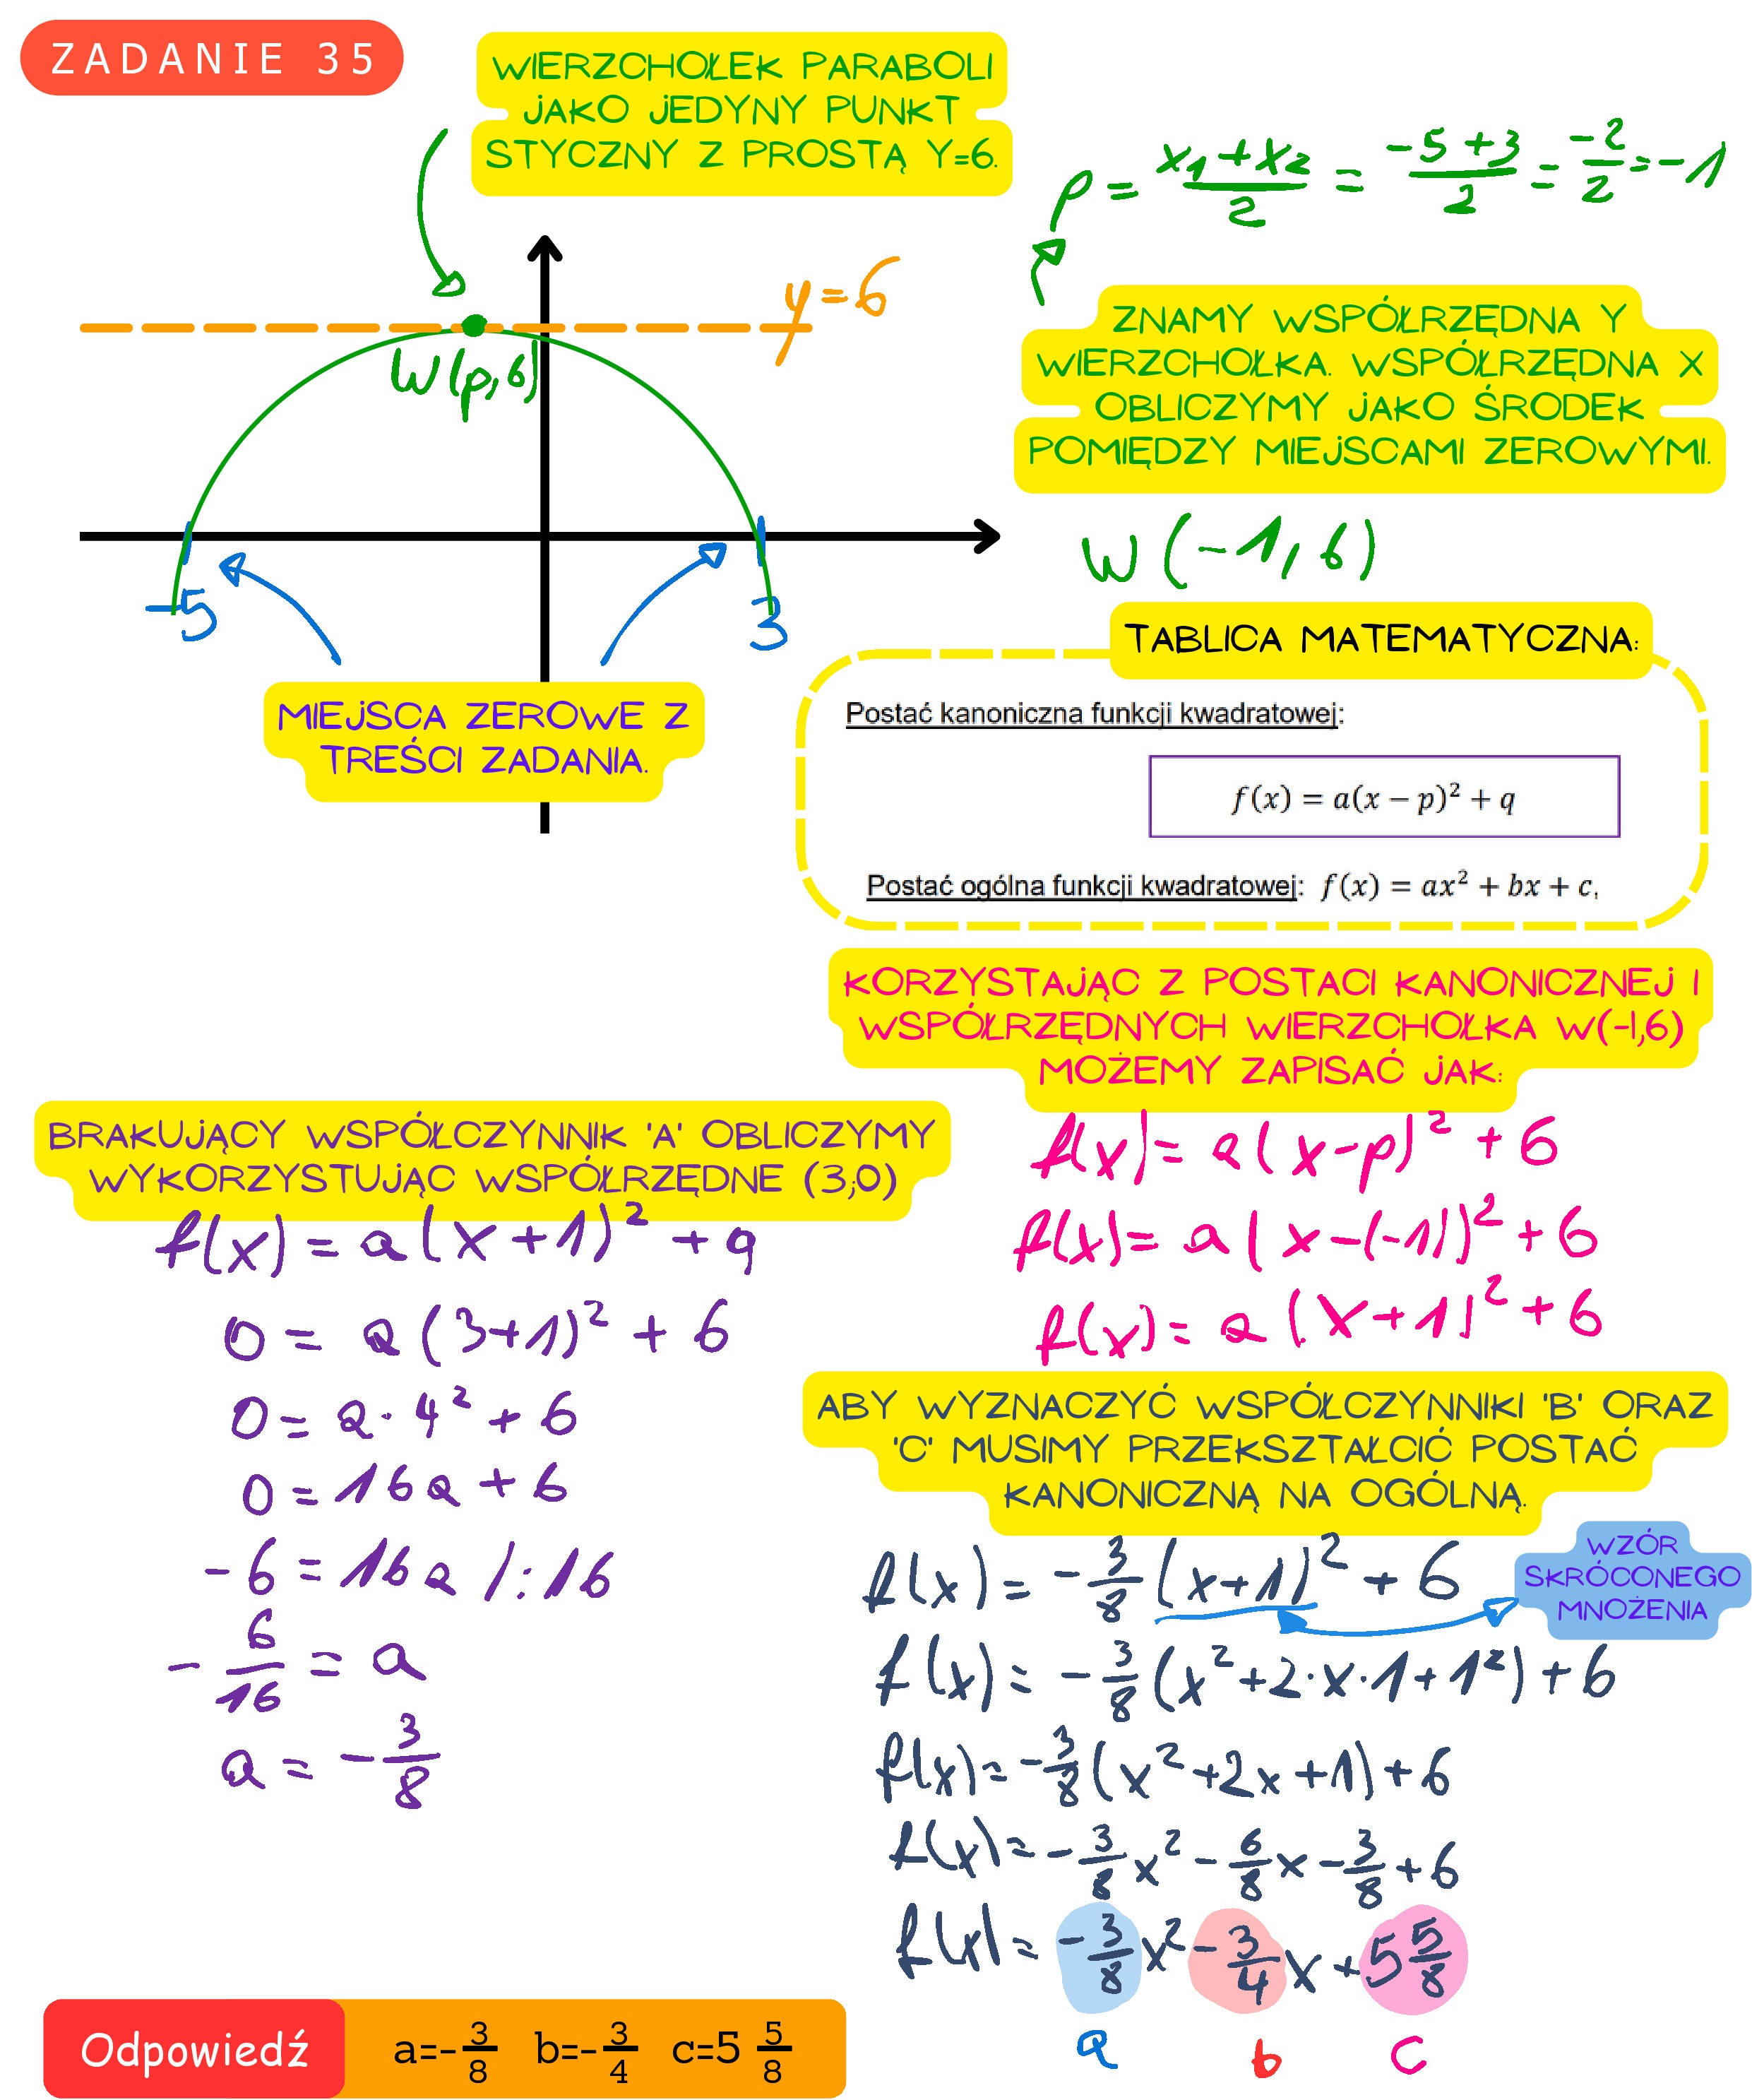 ZADANIE 35
WIERZCHOŁEK PARABOLI
JAKO JEDYNY PUNKT
STYCZNY Z PROSTĄ Y=6.
p = \frac{x_1+x_2}{2} = \frac{-5+3}{2} = \frac{-2}{2} = -1
y=6
W(p,6)
-5
3
ZNAMY WSPÓŁRZĘDNA Y
WIERZCHOŁKA. WSPÓŁRZĘDNA X
OBLICZYMY JAKO ŚRODEK
POMIĘDZY MIEJSCAMI ZEROWYMI.
W (-1, 6)
MIEJSCA ZEROWE Z
TREŚCI ZADANIA.
TABLICA MATEMATYCZNA:
Postać kanoniczna funkcji kwadratowej:
f(x) = a(x − p)² + q
Postać ogólna funkcji kwadratowej: f(x) = ax² + bx + c,
KORZYSTAJĄC Z POSTACI KANONICZNEJ I
WSPÓŁRZĘDNYCH WIERZCHOŁKA W(-1,6)
MOŻEMY ZAPISAĆ JAK:
f(x) = a(x-p)² + 6
f(x) = a(x-(-1))² + 6
f(x) = a(x+1)² + 6
BRAKUJĄCY WSPÓŁCZYNNIK 'A' OBLICZYMY
WYKORZYSTUJĄC WSPÓŁRZĘDNE (3;0)
f(x) = a(x+1)² + q
0 = a(3+1)² + 6
0 = a·4² + 6
0 = 16a + 6
-6 = 16a /:16
-\frac{6}{16} = a
a = -\frac{3}{8}
ABY WYZNACZYĆ WSPÓŁCZYNNIKI 'B' ORAZ
'C' MUSIMY PRZEKSZTAŁCIĆ POSTAĆ
KANONICZNĄ NA OGÓLNĄ.
f(x) = -\frac{3}{8}(x+1)² + 6
WZÓR
SKRÓCONEGO
MNOŻENIA
f(x) = -\frac{3}{8}(x²+2·x·1+1²)+6
f(x) = -\frac{3}{8}(x²+2x+1)+6
f(x) = -\frac{3}{8}x² - \frac{6}{8}x - \frac{3}{8} + 6
f(x) = -\frac{3}{8}x² - \frac{3}{4}x + 5\frac{5}{8}
a b c
Odpowiedź a=-\frac{3}{8} b=-\frac{3}{4} c=5\frac{5}{8}